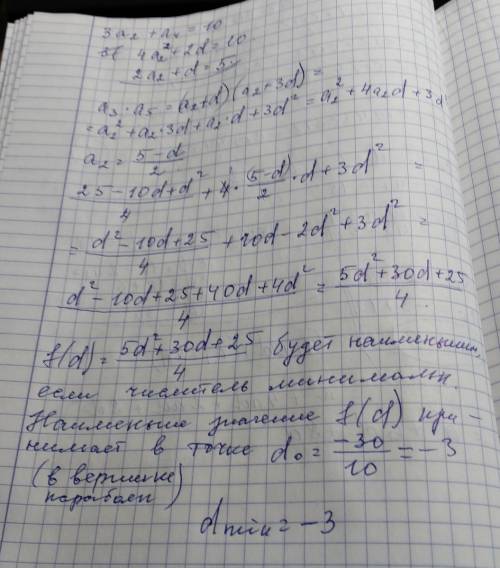 3a₂ + a₄ = 10
4a₂ + 2d = 10
2a₂ + d = 5
a₃ · a₅ = (a₂+d)(a₂+3d) =
= a₂² + a₂·3d + a₂·d + 3d² = a₂² + 4a₂d + 3d
a₂ = (5-d)/2
(25-10d+d²)/4 + 4 · (5-d)/2 · d + 3d² =
= (d²-10d+25)/4 + 10d - 2d² + 3d² =
(d²-10d+25+40d+4d²)/4 = (5d²+30d+25)/4
f(d) = (5d²+30d+25)/4 будет наименьшим,
если числитель минимальн.
Наименьшее значение f(d) при-
нимает в точке d₀ = -30/10 = -3
(в вершине
параболы)
dmin = -3